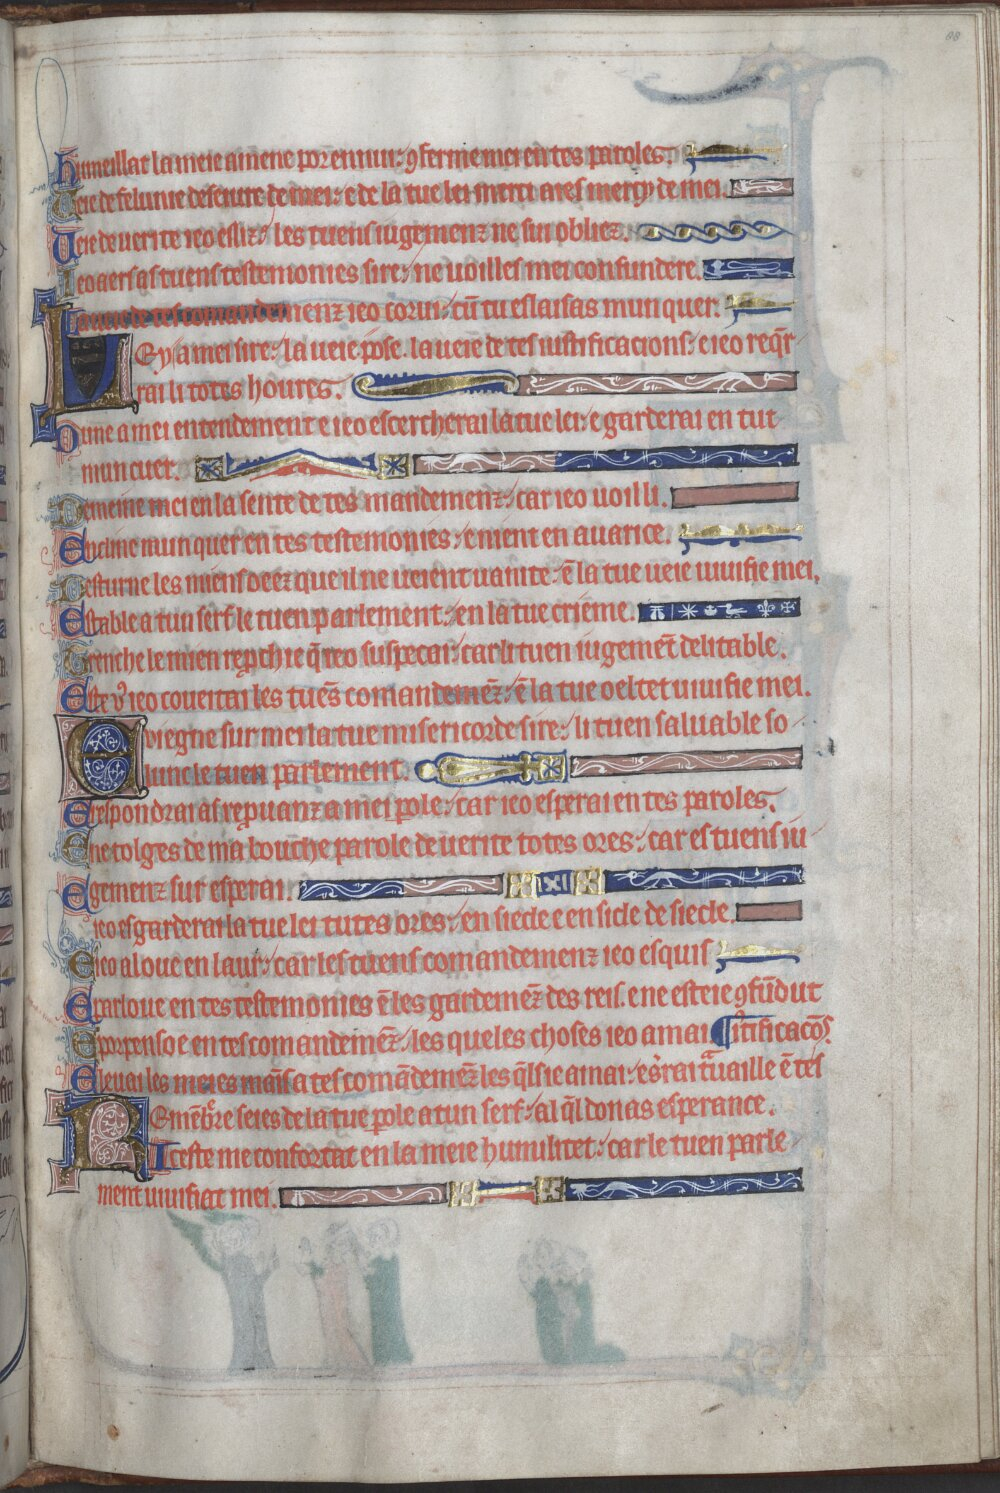 humeillat la meie aineme por ennui: ꝯferme mei en tes paroles.
Ueie de felunie deseure de mei: e de la tue lei merci aies mercy de mei.
Ueie de uerite ieo esliz: les tuens iugemenz ne sui obliez.
Ieo aers as tuens testemonies sire: ne uoilles mei confundere.
La ueie de tes comandemenz ieo corui: cū tu eslaisas mun quer.
LEy a mei sire: la ueie pose la ueie de tes iustificacions: e ieo reqͥr
rai li totes houres.
Dune a mei entendement e ieo escercherai la tue lei: e garderai en tut
mun cuer.
Demeine mei en la sente de tes mandemenz: car ieo uoil li.
Encline mun quer en tes testemonies: e nient en auarice.
Desturne les miens oeez que il ne ueient uainte: ē la tue ueie uiuifie mei,
Estable a tun serf le tuen parlement: en la tue crieme.
Trenche le mien repͨchie q̄ ieo suspecai: car li tuen iugemēt delitable.
Este vͦ ieo coueitai les tuēs comandemēz: ē la tue oeltet uiuifie mei.
Eviegne sur mei la tue misericorde sire: li tuen saluable so
lunc le tuen parlement.
E respondrai as repruanz a mei ꝑole: car ieo esperai en tes paroles.
E ne tolges de ma bouche parole de uerite totes ores: car es tuens iu
gemenz sur esperai.
E ieo esgarderai la tue lei tutes ores: en siecle e en sicle de siecle.
E ieo aloue en laur: car les tuens comandemenz ieo esquis
E parloue en tes testemonies ē les gardemēz des reis. e ne esteie ꝯfūdut
E porpensoe en tes comandemēz: les queles choses ieo amai ¶ iͬtificacōs
E leuai les meies mains a tes comādemēz les q̄ls ie amai: e oͬrai tͣuaille ē tes
REmēbͬre seies de la tue ꝑole a tun serf: al q̄l donas esperance.
Iceste me confortat en la meie humilitet: car le tuen parle
ment uiuifiat mei.